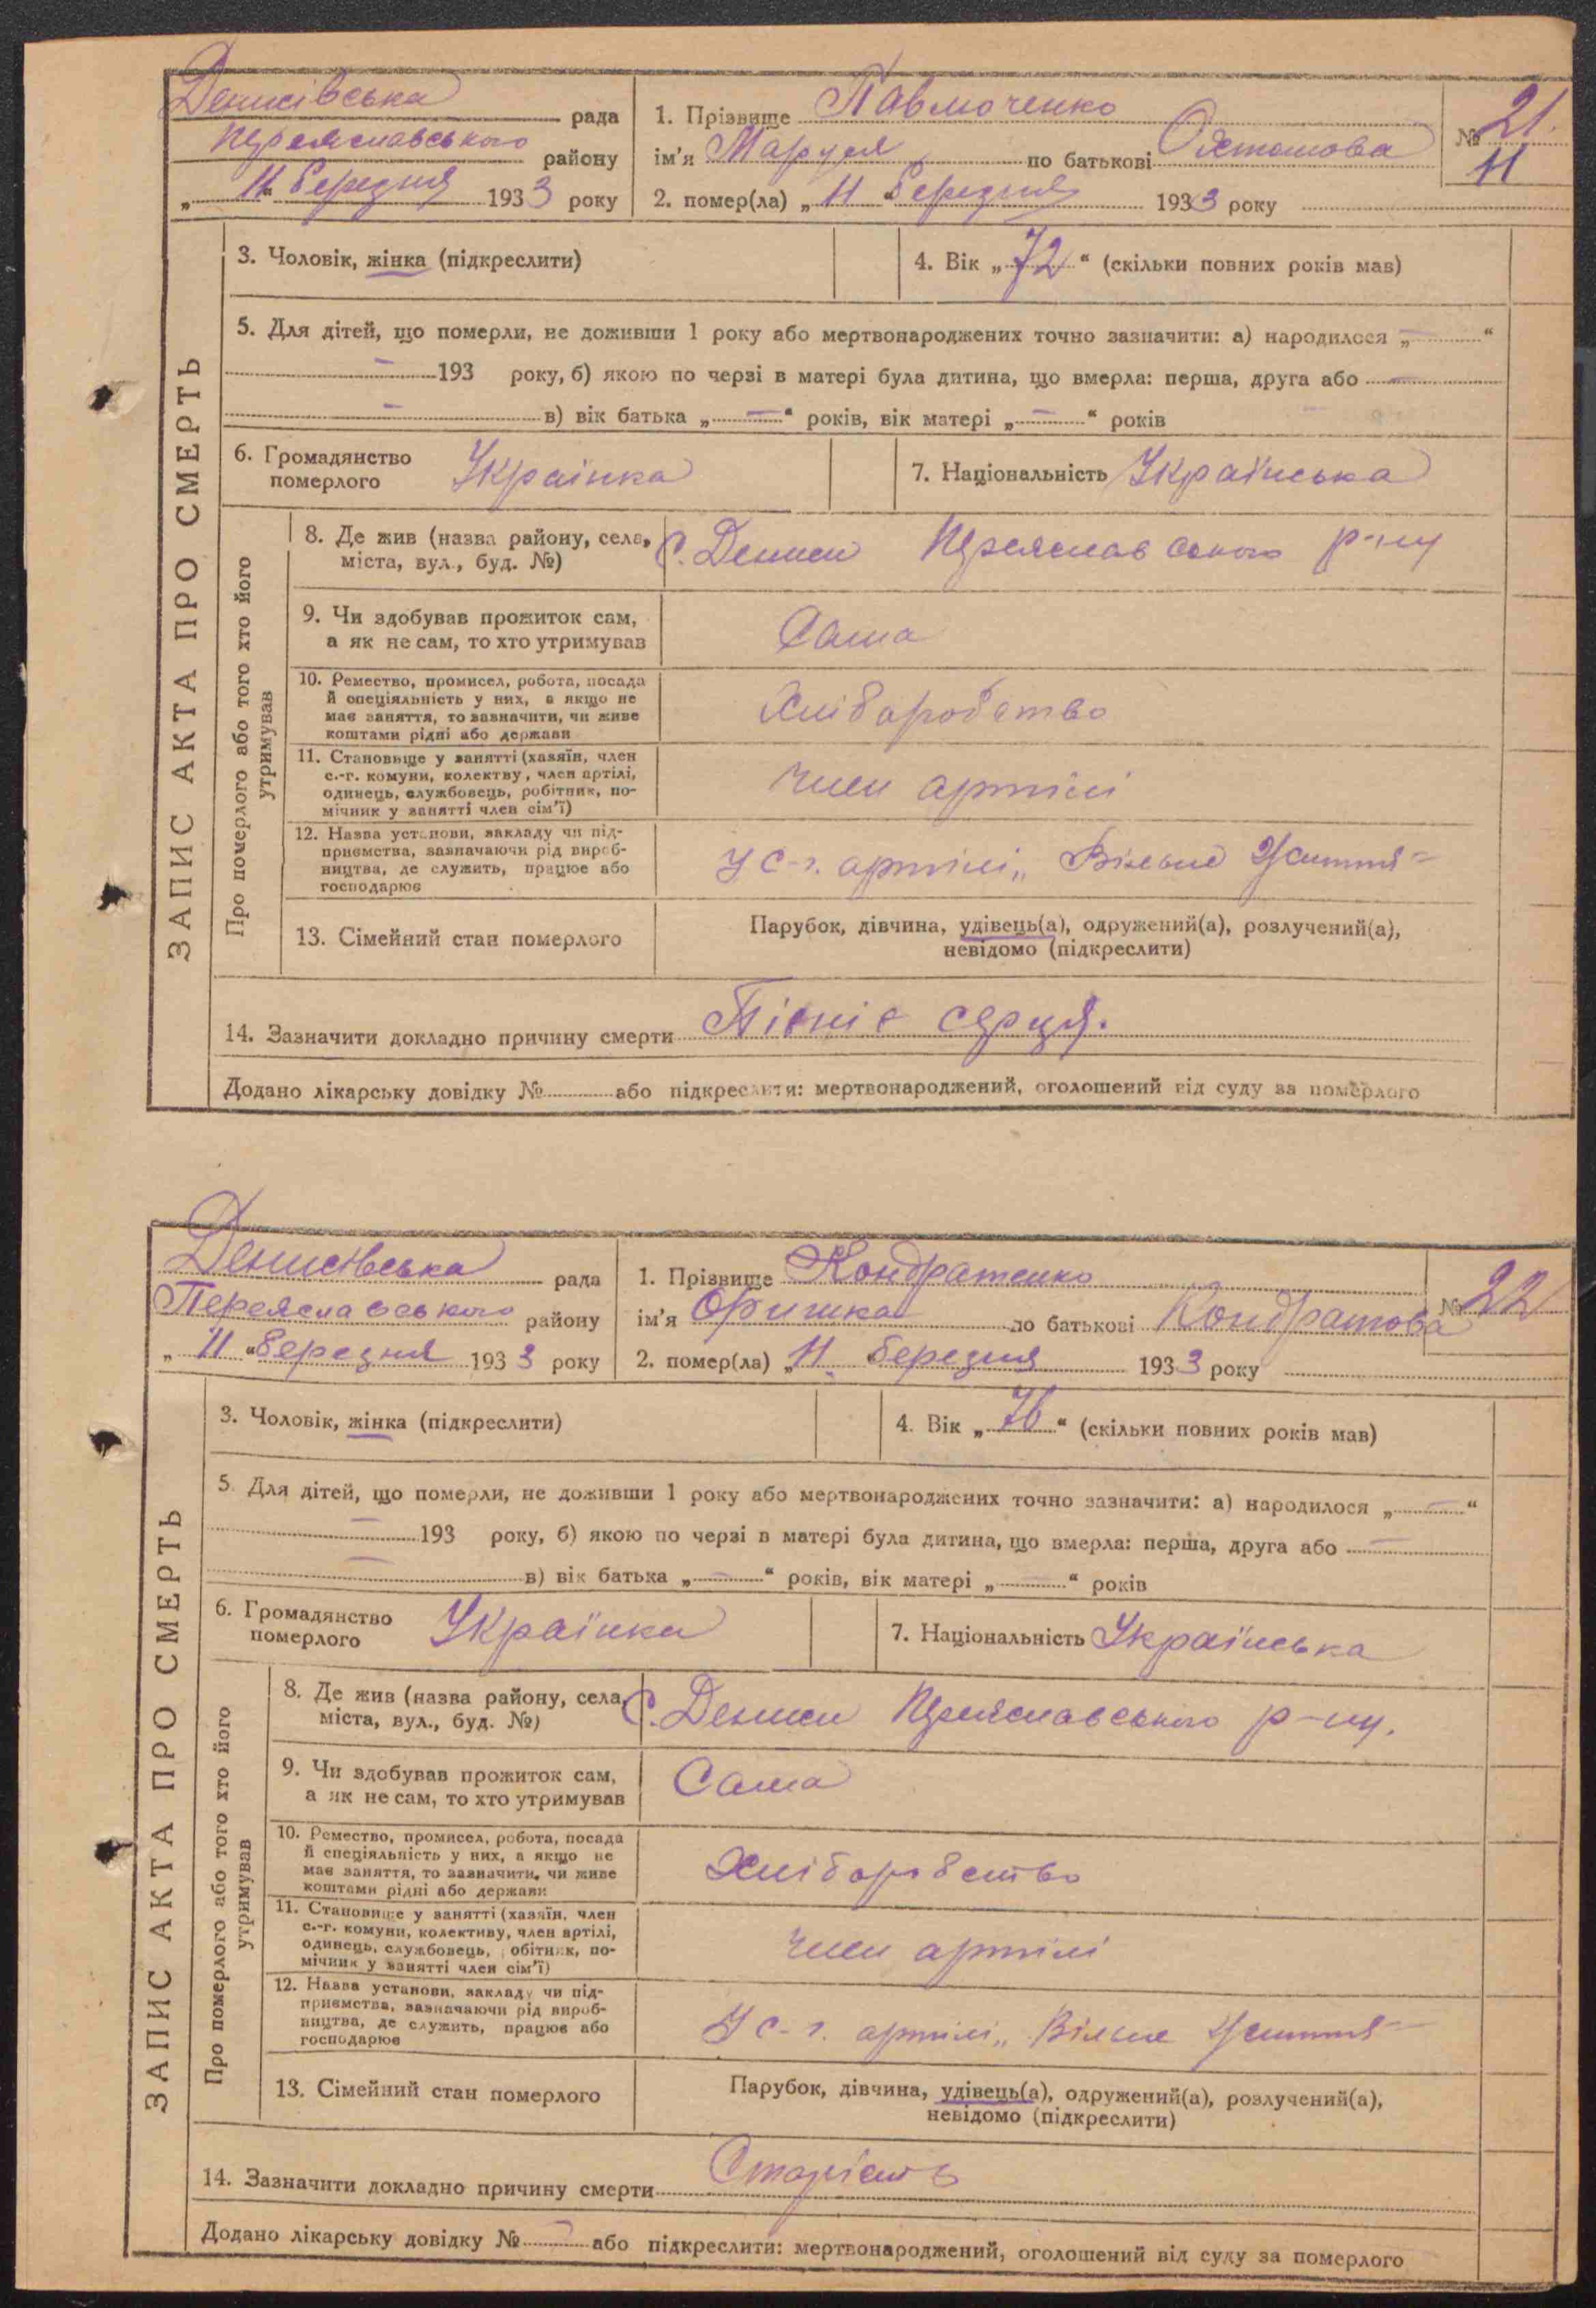 Денисівська рада
Переяславського району
„ 11 “ березня 1933 року
1. Прізвище Павмоченко
ім’я Маруся по батькові
2. помер(ла) „ 11 “ березня 1933 року
№ 21.
11
ЗАПИС АКТА ПРО СМЕРТЬ
3. Чоловік, жінка (підкреслити)
4. Вік „ 72 “ (скільки повних років мав)
5. Для дітей, що померли, не доживши 1 року або мертвонароджених точно зазначити: а) народилося „ — “
— 193 року, б) якою по черзі в матері була дитина, що вмерла: перша, друга або —
— в) вік батька „ — “ років, вік матері „ — “ років
6. Громадянство
померлого Українка
7. Національність Українська
Про померлого або того хто його
утримував
8. Де жив (назва району, села,
міста, вул., буд. №)
с. Дениси Переяславського р-ну
9. Чи здобував прожиток сам,
а як не сам, то хто утримував
Сама
10. Ремество, промисел, робота, посада
й спеціяльність у них, а якщо не
має заняття, то зазначити, чи живе
коштами рідні або держави
Хліборобство
11. Становище у занятті (хазяїн, член
с.-г. комуни, колектву, член артілі,
одинець, службовець, робітник, по-
мічник у занятті член сім’ї)
член артілі
12. Назва установи, закладу чи під-
приємства, зазначаючи рід вироб-
ництва, де служить, працює або
господарює
У с-г. артілі „Вільне Життя“
13. Сімейний стан померлого
Парубок, дівчина, удівець(а), одружений(а), розлучений(а),
невідомо (підкреслити)
14. Зазначити докладно причину смерти серця.
Додано лікарську довідку № або підкреслити: мертвонароджений, оголошений від суду за померлого
Денисівська рада
Переяславського району
„ 11 “ березня 1933 року
1. Прізвище Кондратенко
ім’я Оришка по батькові Кондратова
2. помер(ла) „ 11 “ березня 1933 року
№ 22
ЗАПИС АКТА ПРО СМЕРТЬ
3. Чоловік, жінка (підкреслити)
4. Вік „ 76 “ (скільки повних років мав)
5. Для дітей, що померли, не доживши 1 року або мертвонароджених точно зазначити: а) народилося „ — “
— 193 року, б) якою по черзі в матері була дитина, що вмерла: перша, друга або —
— в) вік батька „ — “ років, вік матері „ — “ років
6. Громадянство
померлого Українка
7. Національність Українська
Про померлого або того хто його
утримував
8. Де жив (назва району, села,
міста, вул., буд. №)
с. Дениси Переяславського р-ну.
9. Чи здобував прожиток сам,
а як не сам, то хто утримував
Сама
10. Ремество, промисел, робота, посада
й спеціяльність у них, а якщо не
має заняття, то зазначити, чи живе
коштами рідні або держави
Хліборобство
11. Становище у занятті (хазяїн, член
с.-г. комуни, колективу, член артілі,
одинець, службовець, робітник, по-
мічник у занятті член сім’ї)
член артілі
12. Назва установи, закладу чи під-
приємства, зазначаючи рід вироб-
ництва, де служить, працює або
господарює
У с-г. артілі „Вільне Життя“
13. Сімейний стан померлого
Парубок, дівчина, удівець(а), одружений(а), розлучений(а),
невідомо (підкреслити)
14. Зазначити докладно причину смерти Старість
Додано лікарську довідку № — або підкреслити: мертвонароджений, оголошений від суду за померлого